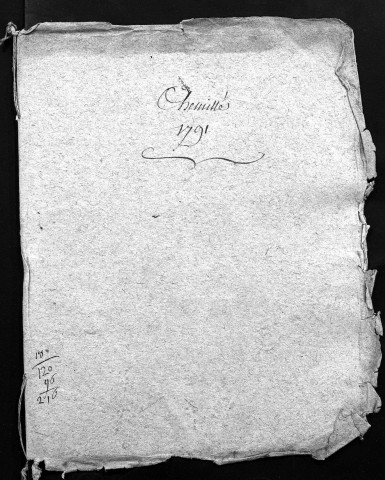 Chemillé
1791
120
96
216